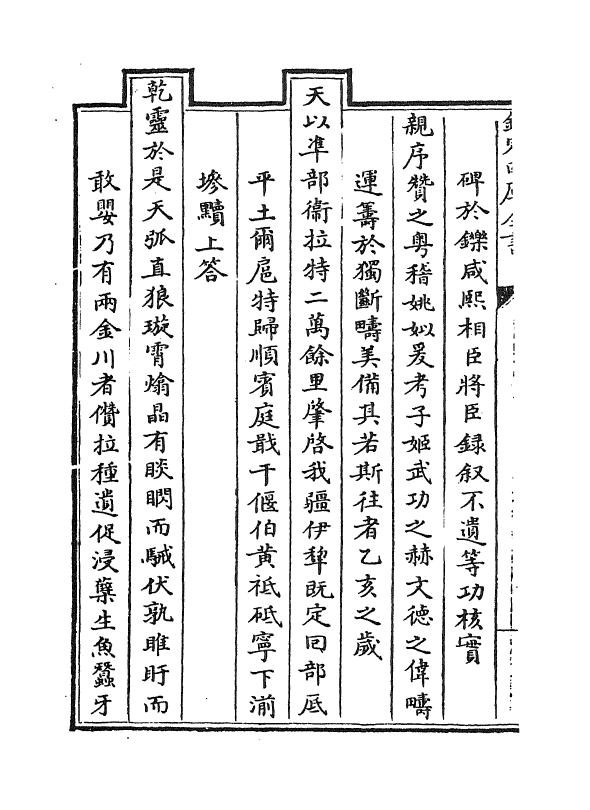 碑於鑠咸熙相臣將臣録叙不遺等功核實
親序贊之粤稽姚姒爰考子姬武功之赫文德之偉疇
運籌於獨斷疇美備其若斯往者乙亥之歲
天以凖部衞拉特二萬餘里肇啓我疆伊犂既定回部底
平土爾扈特歸順賓庭戢干偃伯黄祗砥寧下湔
墋黷上答
乾靈於是天弧直狼璇霄爚晶有睒閃而駴伏孰睢盱而
敢嬰乃有兩金川者儹拉種遺促浸蘖生魚蠶牙